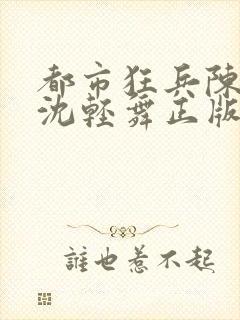 都市狂兵陳
沈輕舞正版
誰也惹不起